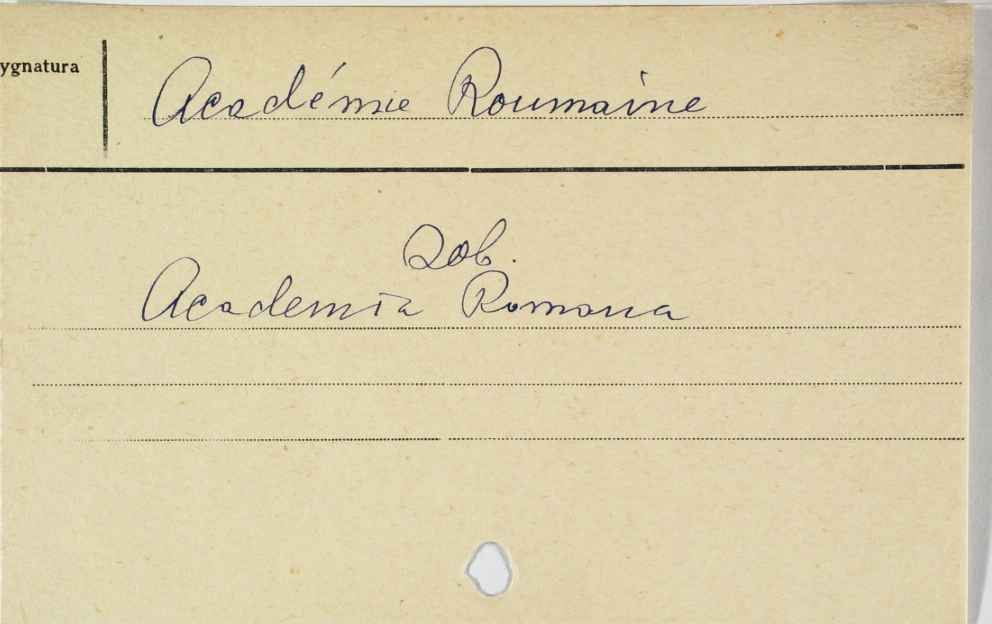 ygnatura
Académie Roumaine
zob.
Academia Romana